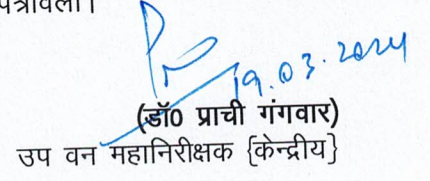 पत्रावली।
19.03.2024
(डॉ0 प्राची गंगवार)
उप वन महानिरीक्षक {केन्द्रीय}